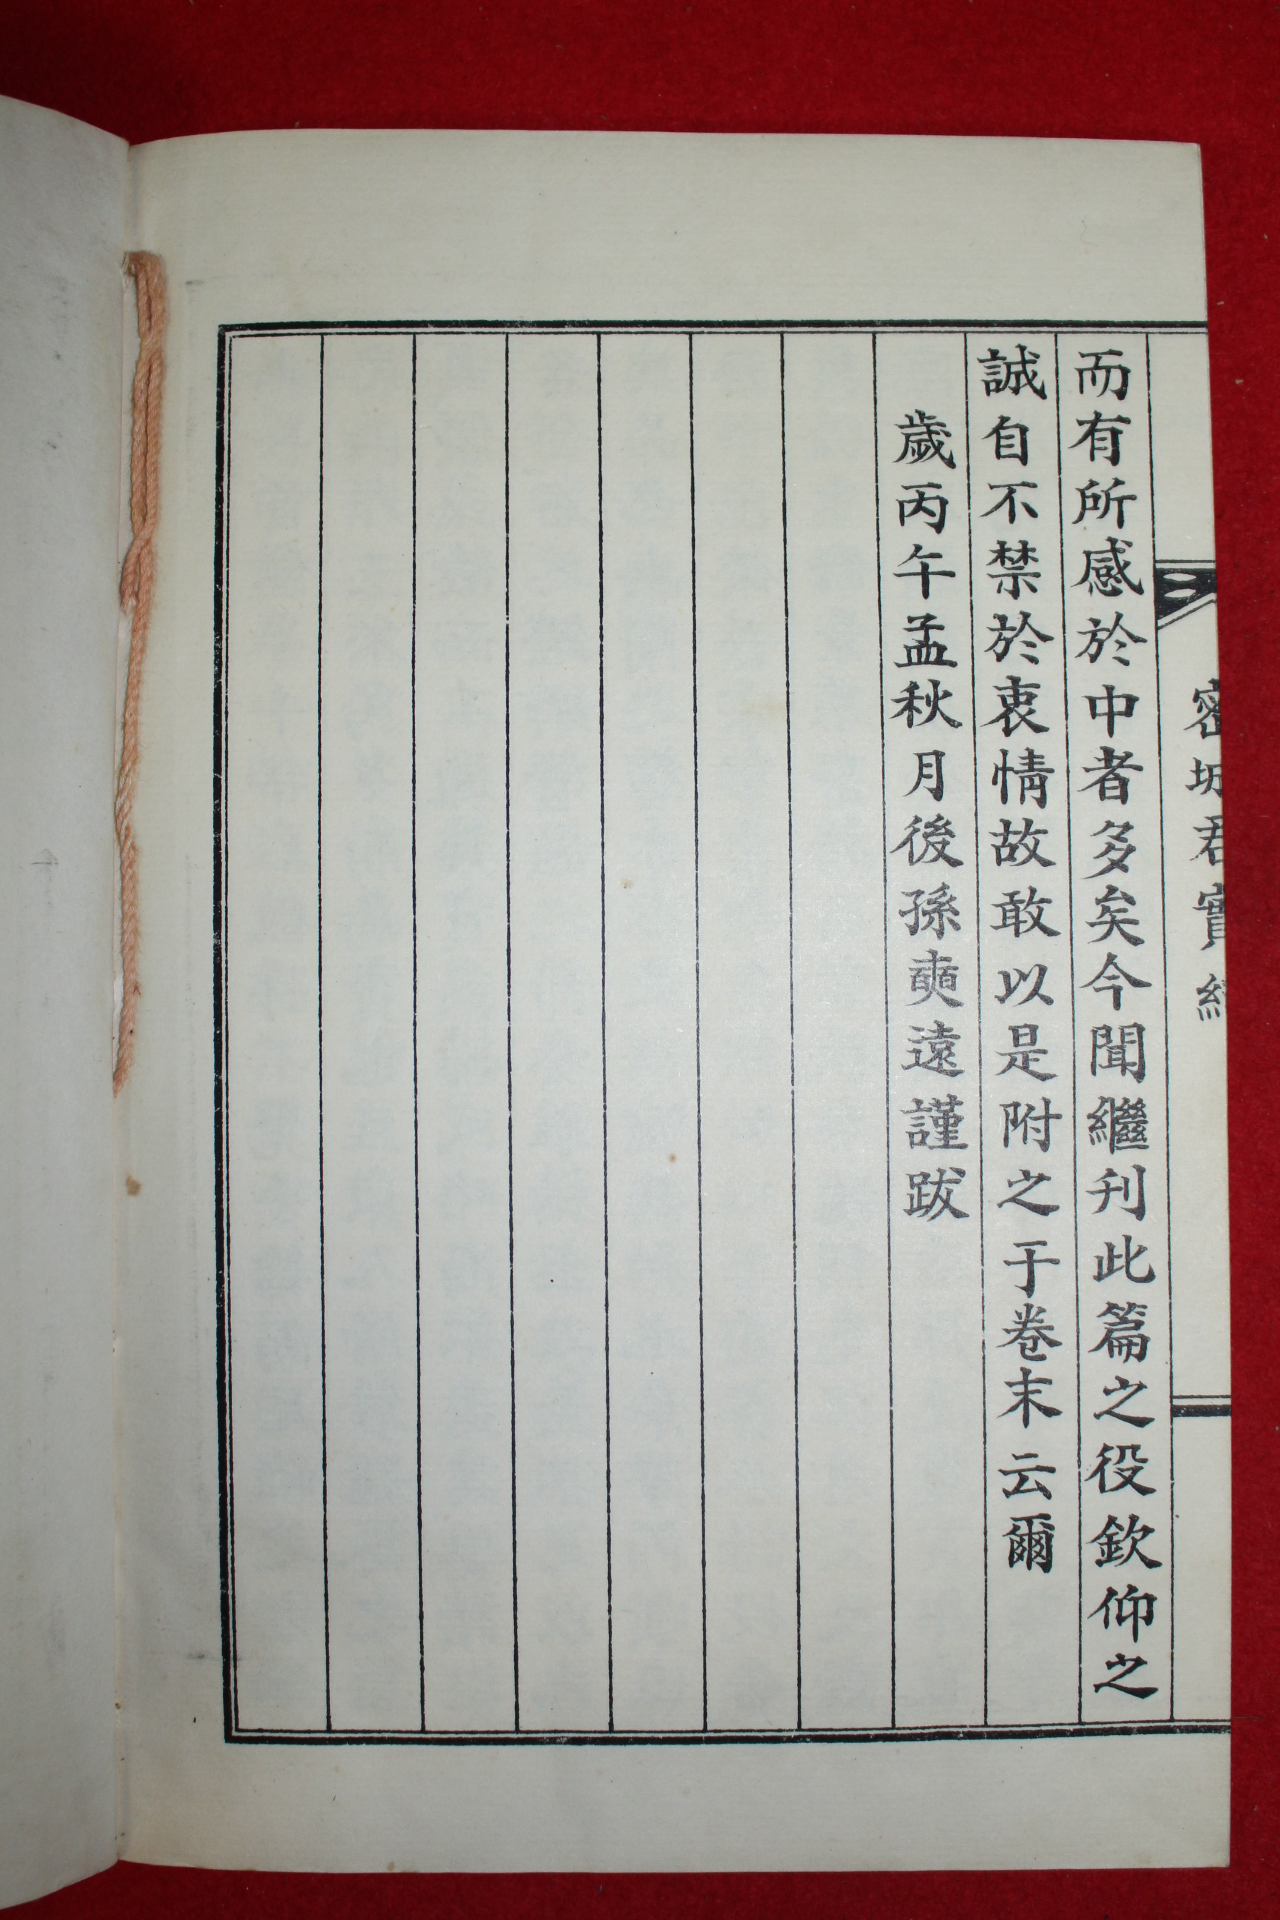 密城君實紀
而有所感於中者多矣今聞繼刊此篇之役欽仰之
誠自不禁於衷情故敢以是附之于卷末云爾
歲丙午孟秋月後孫奭遠謹跋